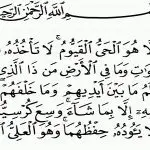 اللَّهِ الرَّحْمَٰنِ الرَّحِيمِ
هُوَ الْحَيُّ الْقَيُّومُ ۚ لَا تَأْخُذُهُ
وَمَا فِي الْأَرْضِ مَن ذَا الَّذِي
مَا بَيْنَ أَيْدِيهِمْ وَمَا خَلْفَهُمْ
إِلَّا بِمَا شَاءَ ۚ وَسِعَ كُرْسِيُّهُ
يَئُودُهُ حِفْظُهُمَا ۚ وَهُوَ الْعَلِيُّ